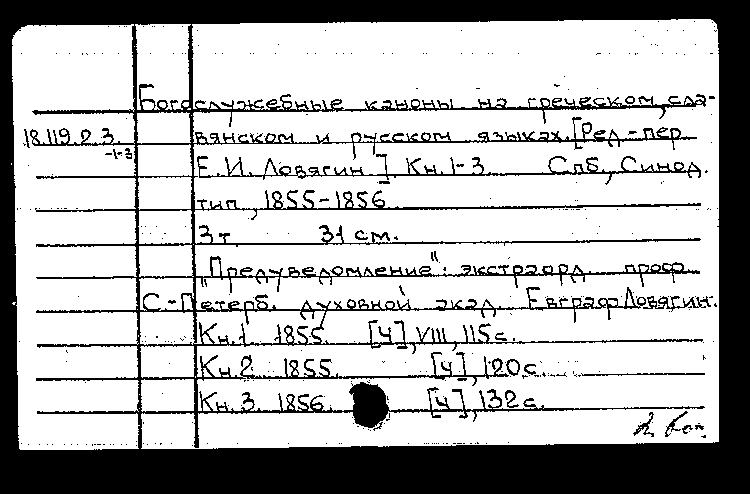 Богослужебные каноны на греческом, сла-
18.119.2.3. вянском и русском языках. [Ред.-пер.
-1-3
Е.И. Ловягин]. Кн. 1-3. Спб., Синод.
тип., 1855-1856.
3 т. 31 см.
"Предуведомление": экстраорд. проф.
С.-Петерб. духовной акад. Евграф Ловягин.
Кн. 1. 1855. [4], VIII, 115 с.
Кн. 2. 1855. [4], 120 с.
Кн. 3. 1856. [4], 132 с.